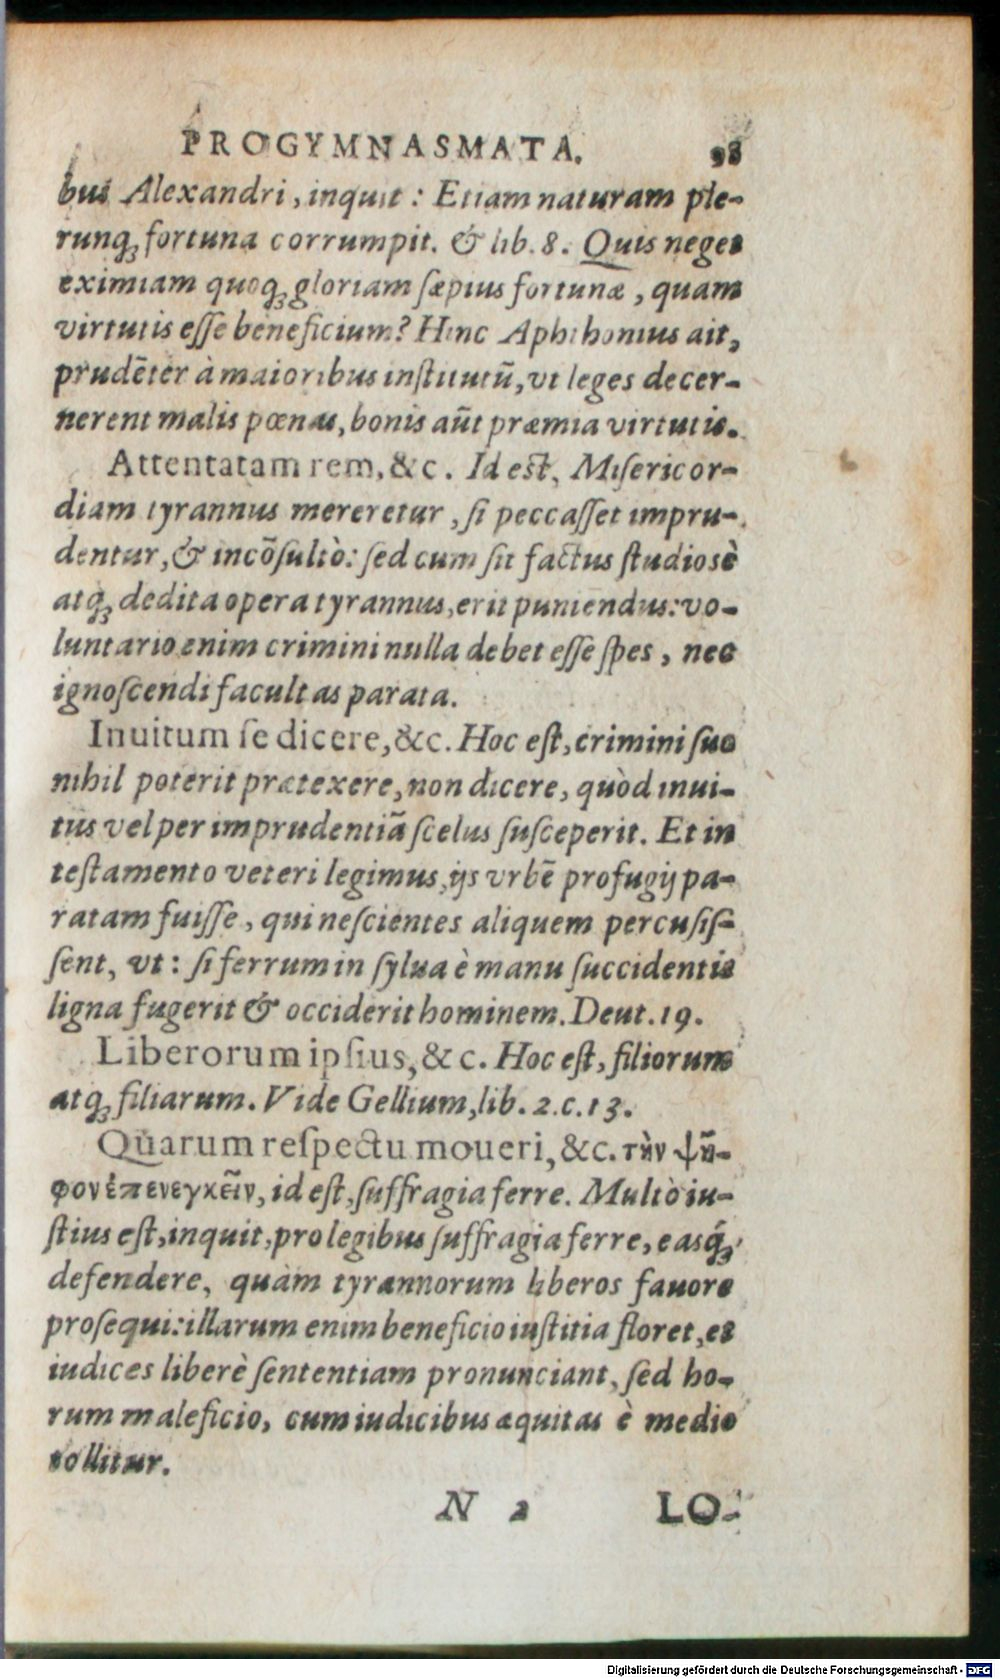 PROGYMNASMATA. 98
bus Alexandri, inquit: Etiam naturam ple-
runq; fortuna corrumpit. & lib. 8. Quis neget
eximiam quoq; gloriam sæpius fortunæ, quam
virtutis eſſe beneficium? Hinc Aphthonius ait,
prudẽter à maioribus inſtitutũ, vt leges decer-
nerent malis pœnas, bonis aũt præmia virtutis.
Attentatam rem, &c. Id eſt, Miſericor-
diam tyrannus mereretur, ſi peccaſſet impru-
dentur, & incõſultò: ſed cum ſit factus ſtudiosè
atq; dedita opera tyrannus, erit puniendus: vo-
luntario enim crimini nulla debet eſſe ſpes, nec
ignoſcendi facultas parata.
Inuitum ſe dicere, &c. Hoc eſt, crimini ſuo
nihil poterit prætexere, non dicere, quòd inui-
tus vel per imprudentiã ſcelus ſuſceperit. Et in
teſtamento veteri legimus, ijs vrbẽ profugij pa-
ratam fuiſſe, qui neſcientes aliquem percuſiſ-
ſent, vt: ſi ferrum in ſylua è manu ſuccidentis
ligna fugerit & occiderit hominem. Deut. 19.
Liberorum ipſius, &c. Hoc eſt, filiorum
atq; filiarum. Vide Gellium, lib. 2. c. 13.
Quarum reſpectu moueri, &c. τὴν ψῆ-
φον ἐπενεγκεῖν, id eſt, ſuffragia ferre. Multò iu-
ſtius eſt, inquit, pro legibus ſuffragia ferre, easq́;
defendere, quàm tyrannorum liberos fauore
proſequi: illarum enim beneficio iuſtitia floret, et
iudices liberè ſententiam pronunciant, ſed ho-
rum maleficio, cum iudicibus æquitas è medio
tollitur.
N 2 LO-
Digitalisierung gefördert durch die Deutsche Forschungsgemeinschaft - DFG